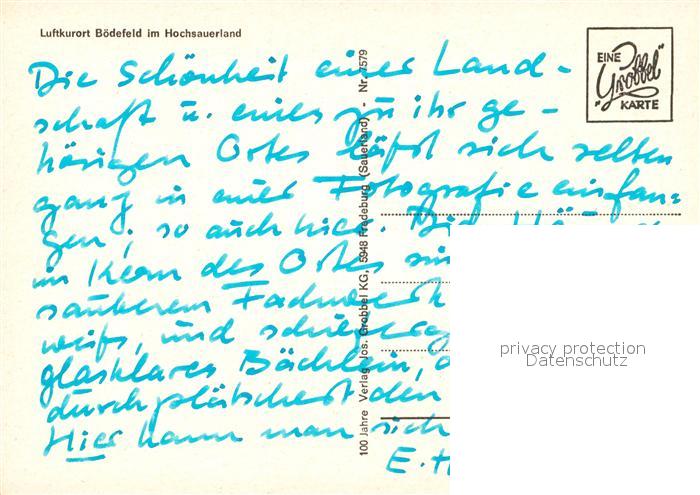 Luftkurort Bödefeld im Hochsauerland
EINE
"Grobbel"
KARTE
Die Schönheit einer Land-
schaft u. eines zu ihr ge-
hörigen Ortes läßt sich selten
ganz in einer Fotografie einfan=
gen; so auch hier. Die
im Kern des Ortes
sauberem Fachwerk
weiß, und
glasklares Bächlein,
durchplätschert den
Hier kann man sich
E.
100 Jahre Verlag Jos. Grobbel KG, 5948 Fredeburg (Sauerland) - Nr.
privacy protection
Datenschutz